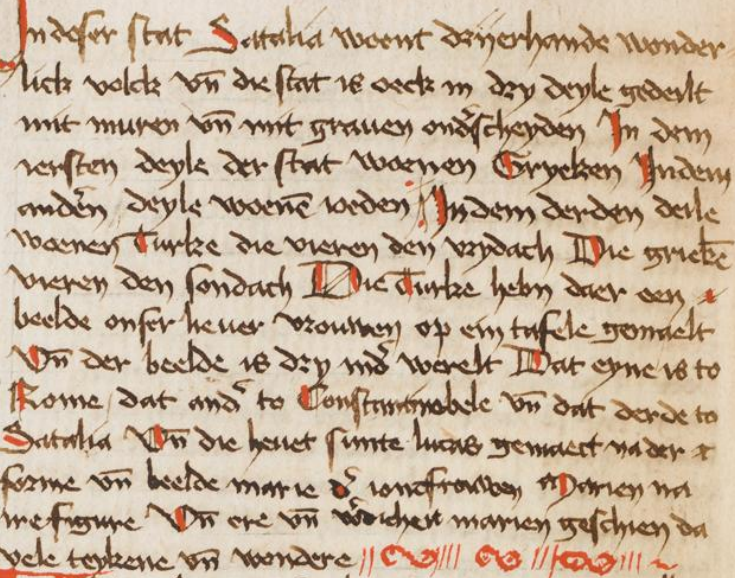 In deser stat Satalia woent dryerhande wonder
lick volck vn̄ die stat is oeck in dry deyle gedeilt
mit muren vn̄ mit grauen ond'scheyden In dem
iersten deyle der stat woenen Gryeken In dem
anderen deyle woenē ioeden In dem derden deile
woenen Turke die vieren den vrydach Die griekē
vieren den sondach Die Turke hebn daer een
beelde onser lieuer vrouwen op ein tafele gemaelt
Vn̄ der beelde is dry ind' werelt Dat eyne is to
Rome dat and' to Constantinobele vn̄ dat derde to
Satalia Vn̄ die heuet sunte lucas gemaect na der
forme vn̄ beelde marie d' ioncfrouwen Marien na
ire figure Vn̄ ere vn̄ marien geschien da
vele teykene vn̄ wondere